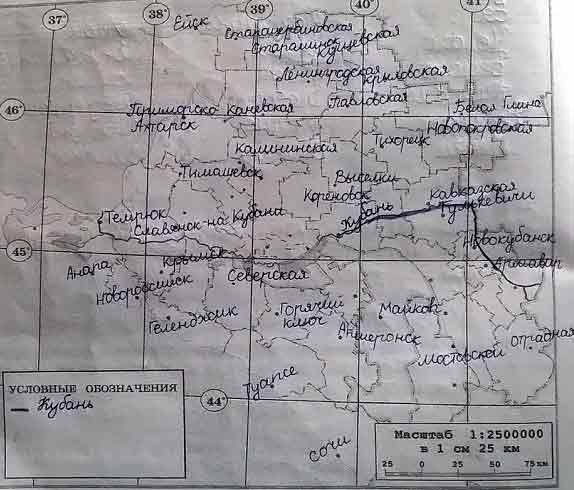 37° 38° 39° 40° 41°
Ейск
Старощербиновская
Староминск
Кущевская
Ленинградская
Крыловская
46°
Приморско
Ахтарск
Каневская
Павловская
Белая Глина
Новопокровская
Калининская
Тихорецк
Тимашевск
Выселки
Кореновск
Кавказская
Гулькевичи
Темрюк
Славянск-на Кубани
Кубань
Новокубанск
45°
Армавир
Анапа
Крымск
Северская
Новороссийск
Геленджик
Горячий
ключ
Майкоп
Апшеронск
Отрадная
Мостовской
Туапсе
44°
Сочи
УСЛОВНЫЕ ОБОЗНАЧЕНИЯ
Кубань
Масштаб 1:2500000
в 1 см 25 км
25 0 25 50 75 км